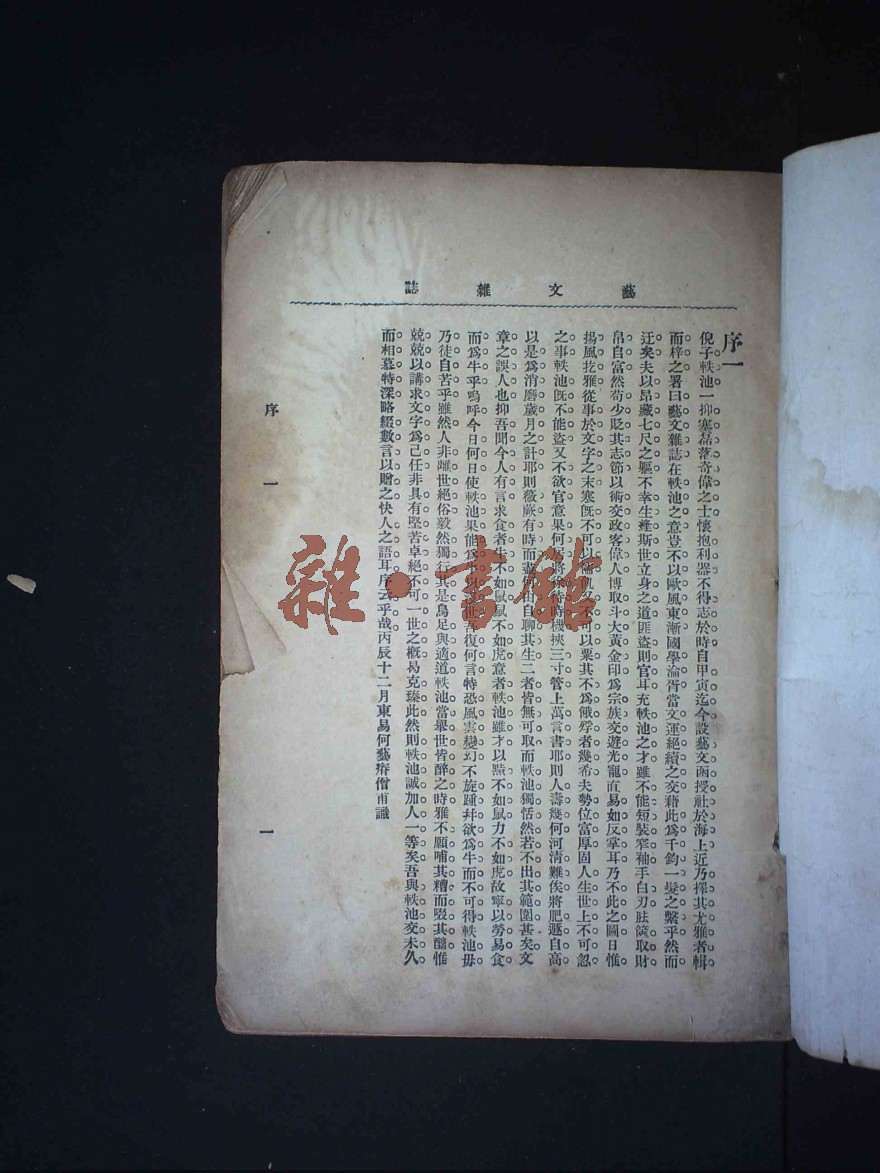 藝文雜誌
序一
倪子軼池一抑塞磊落奇偉之士懷抱利器不得志於時自甲寅迄今設藝文函授社於海上近乃擇其尤雅者輯
而梓之署曰藝文雜誌在軼池之意豈不以歐風東漸國學淪胥當文運絕續之交藉此為千鈞一髮之繫乎然而
迂矣夫以昂藏七尺之軀不幸生逢斯世立身之道匪盜則官耳充軼池之才雖不能短裝窄袖手白刃胠篋取財
帛自富然苟少貶其志節以術交政客偉人博取斗大黃金印為宗族交遊光寵直易如反掌耳乃不此之圖日惟
揚風扢雅從事於文字之末寒既不可以為不可以粟其不為餓殍者幾希夫勢位富厚固人生世上不可忽
之事軼池既不能盜又不欲官意果何居將時機挾三寸管上萬言書耶則人壽幾何河清難俟將肥遯自高
以是為消磨歲月之計耶則薇蕨有時而盡自聊其生二者皆無可取而軼池獨恬然若不出其範圍甚矣文
章之誤人也抑吾聞今人有言求食者牛不如鼠鼠不如虎意者軼池雖才以黠不如鼠力不如虎故寧以勞易食
而為牛乎嗚呼今日何日使軼池果能為牛以復何言特恐風雲變幻不旋踵幷欲為牛而不可得軼池毋
乃徒自苦乎雖然人非離世絕俗毅然獨行其是烏足與適道軼池當舉世皆醉之時雅不願哺其糟而啜其醨惟
兢兢以講求文字為己任非具有堅苦卓絕不可一世之概曷克臻此然則軼池誠加人一等矣吾與軼池交未久
而相慕特深略綴數言以贈之快人之語耳序云乎哉丙辰十二月東易何藝癠僧甫識
序
一
一
雜·書館